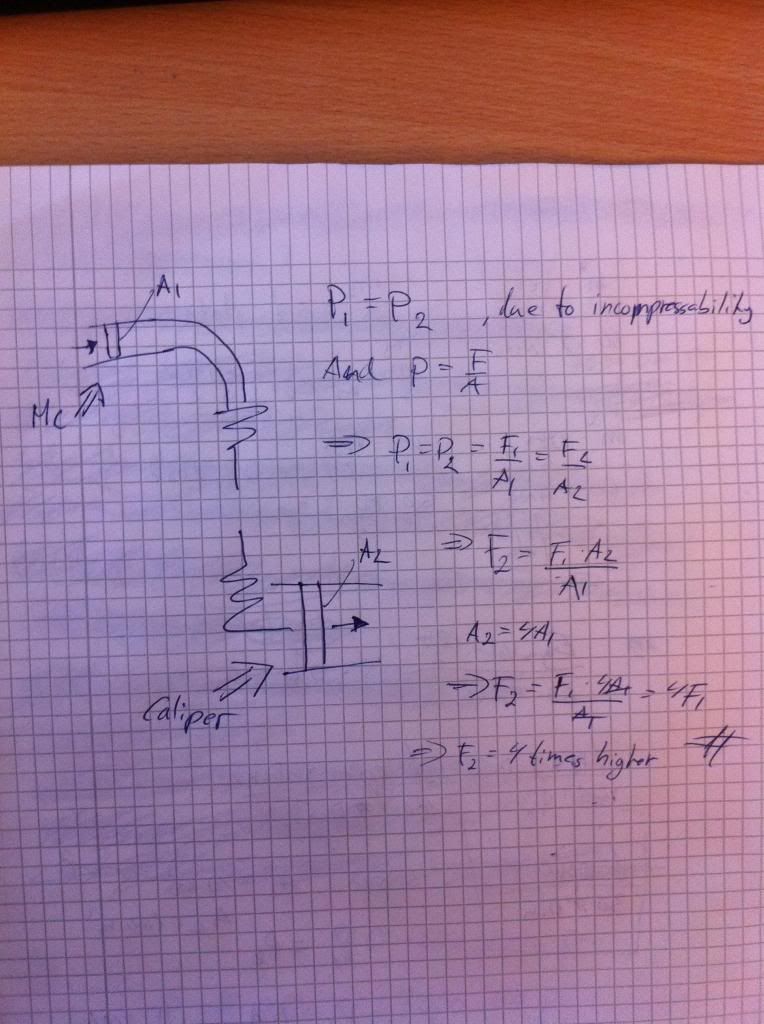 A1
P1 = P2 , due to incompressability
And P = F/A
Mc
=> P1 = P2 = F1/A1 = F2/A2
A2
=> F2 = F1 · A2/A1
A2 = 4A1
Caliper
=> F2 = F1 · 4A1/A1 = 4F1
=> F2 = 4 times higher #